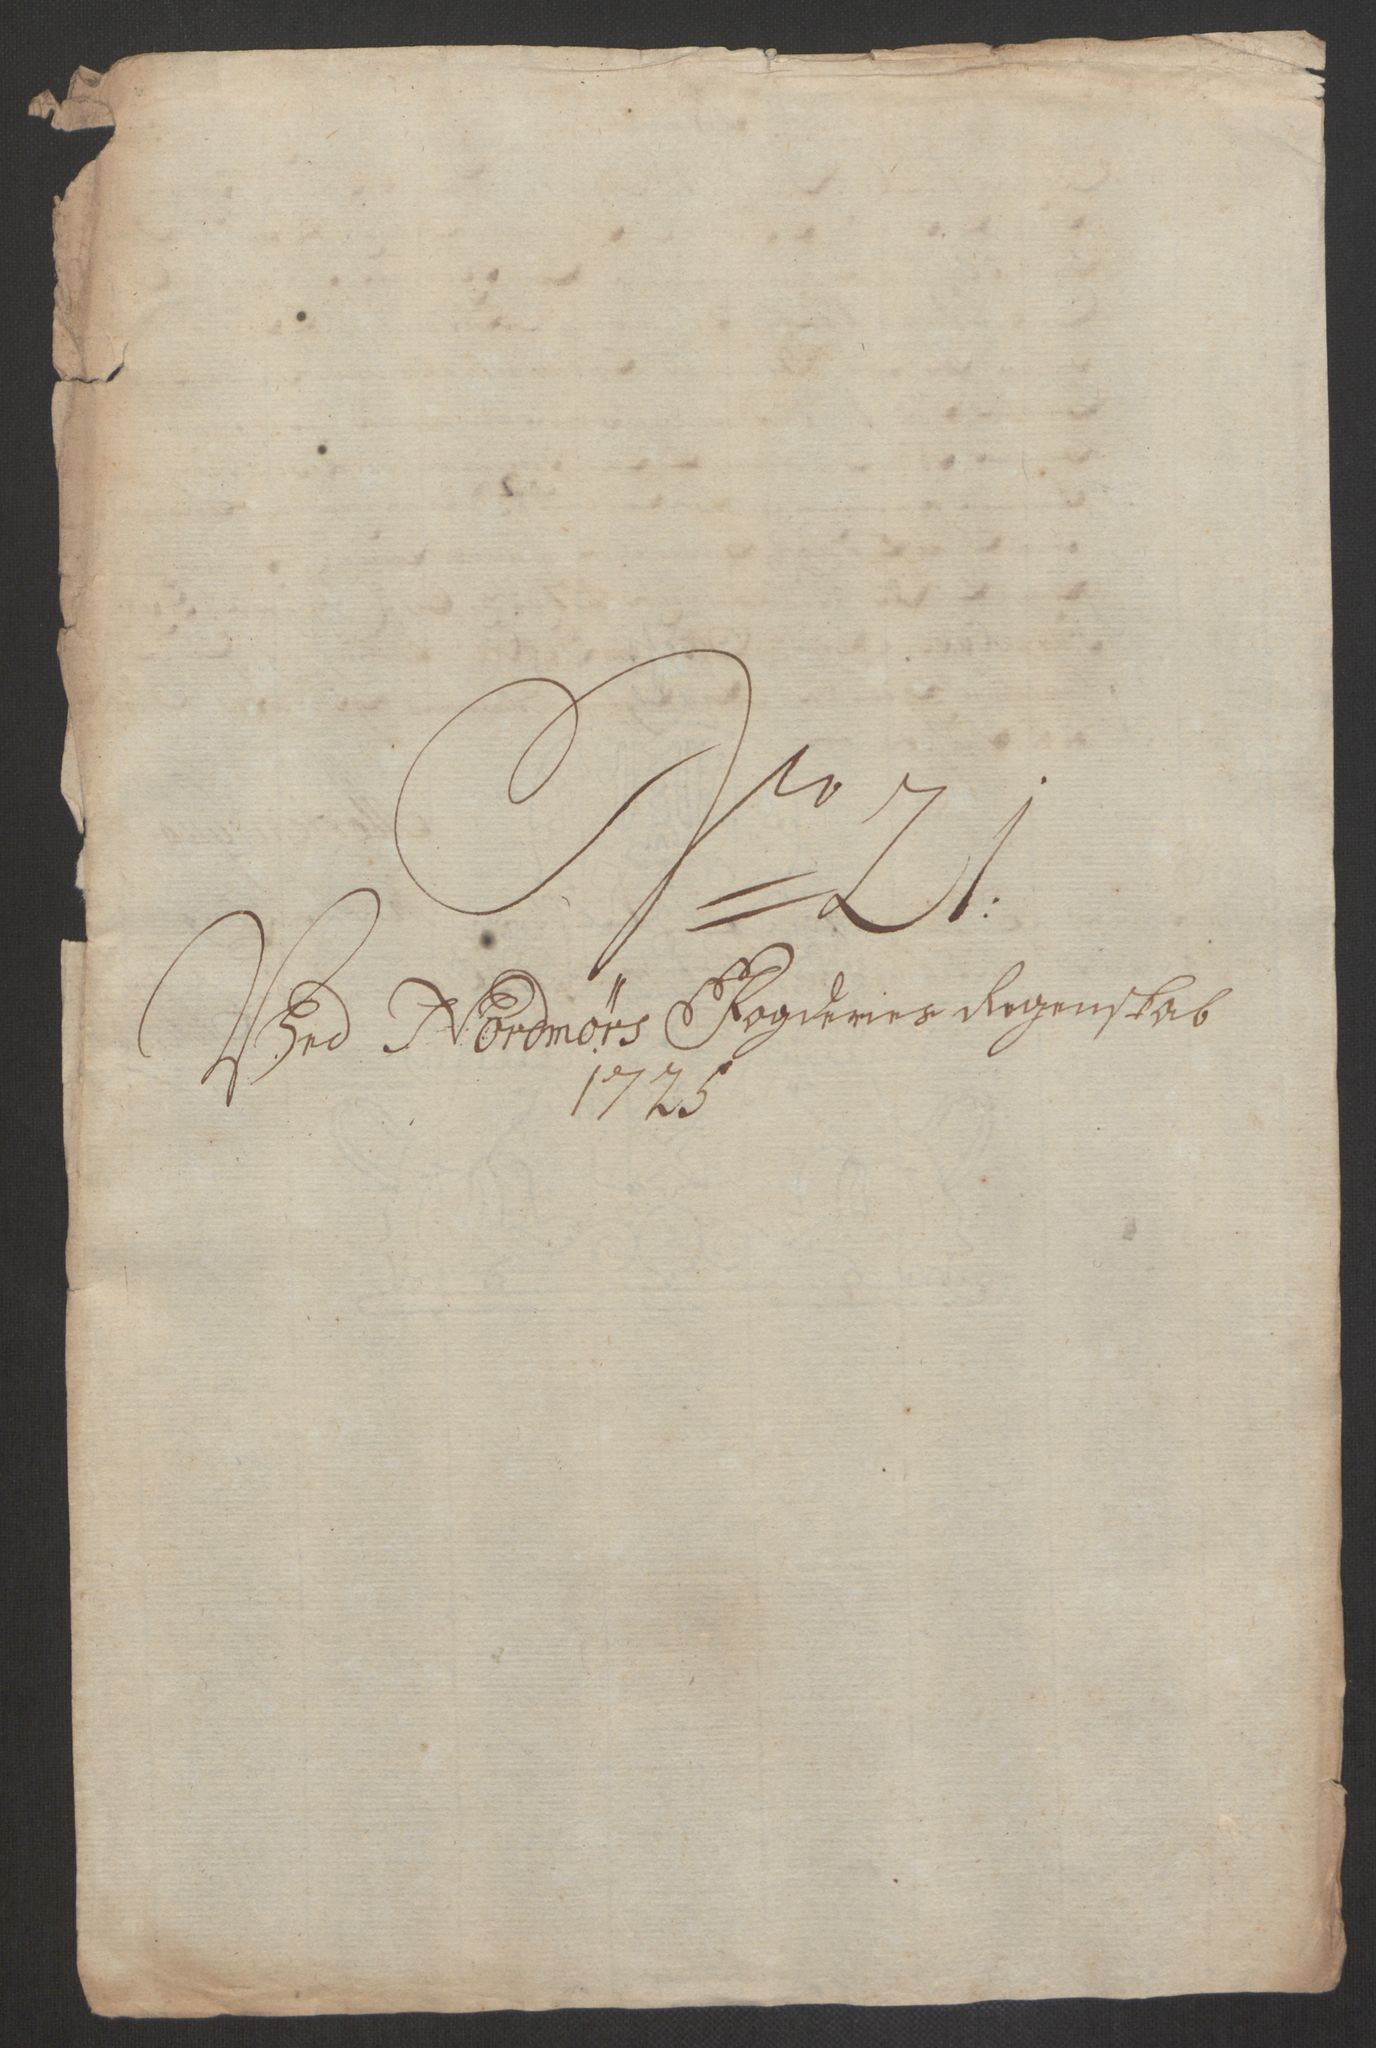 No 21:
Ved Nordmørs Fogderies Regenskab
1725